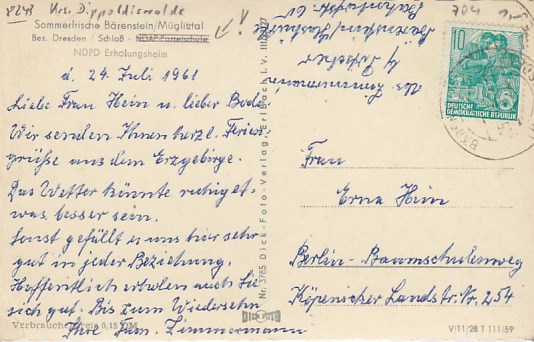 8243 Krs. Dippoldiswalde
Sommerfrische Bärenstein/Müglitztal
Bez. Dresden / Schloß - NDAP-Parteischule
NDPD Erholungsheim
d. 24. Juli 1961
Liebe Frau Hein u. lieber Bodo.
Wir senden Ihnen herzl. Ferien-
grüße aus dem Erzgebirge.
Das Wetter könnte ruhig et-
was besser sein.
Sonst gefällt es uns hier sehr
gut in jeder Beziehung.
Hoffentlich erholen auch Sie
sich gut. Bis zum Wiedersehn
Ihre Fam. Zimmermann
Verbraucherpreis 0,15 DM
Nr. 3765 Dick-Foto-Verlag, Erlbach i. V.
DICK FOTO
Abs. Zimmermann
704
10
DEUTSCHE
DEMOKRATISCHE REPUBLIK
Frau
Erna Hein
Berlin-Baumschulenweg
Köpenicker Landstr. Nr. 254
V/11/28 T 111/59